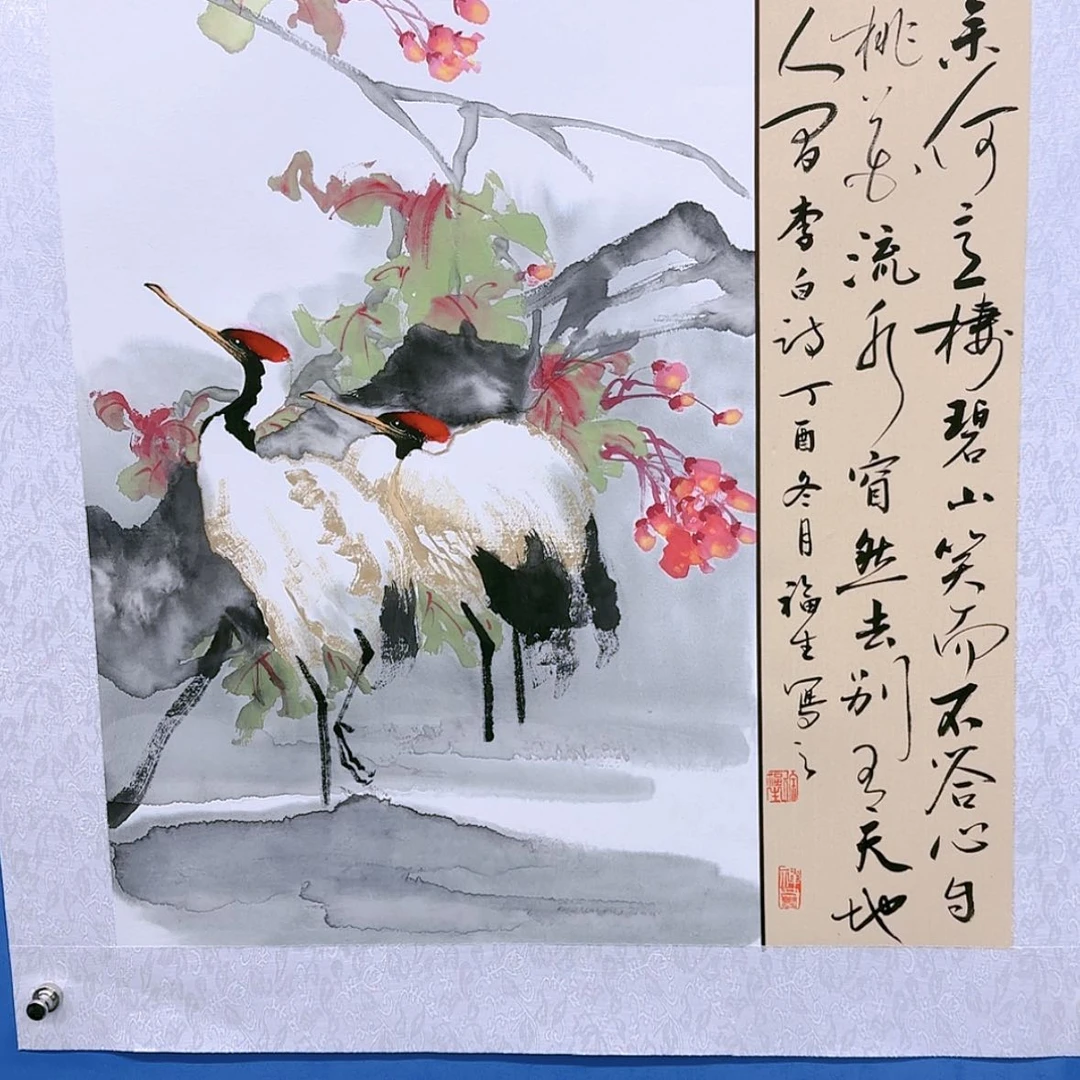 余何意棲碧山笑而不答心自
桃花流水窅然去別有天地
人間李白詩丁酉冬月福生寫之